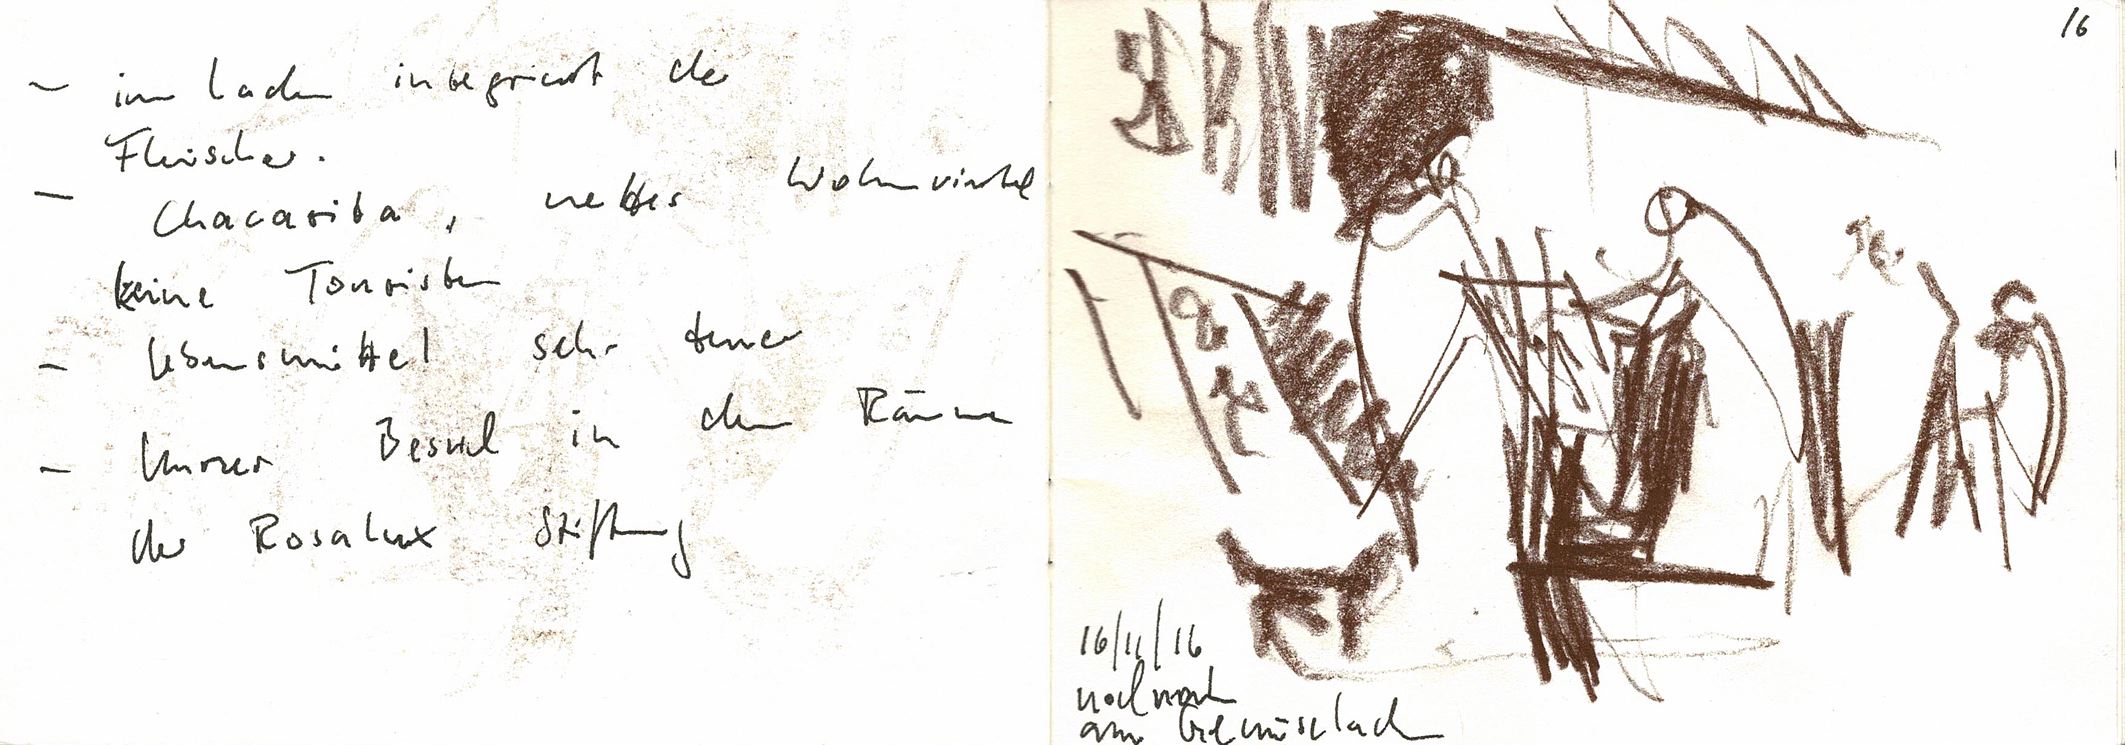 – im Laden integriert der
Fleischer.
– Chacarita, nettes Wohnviertel
keine Touristen
– Lebensmittel sehr teuer
– kurzer Besuch in den Räumen
der Rosalux Stiftung
16
16/11/16
nochmal
am Gemüseladen